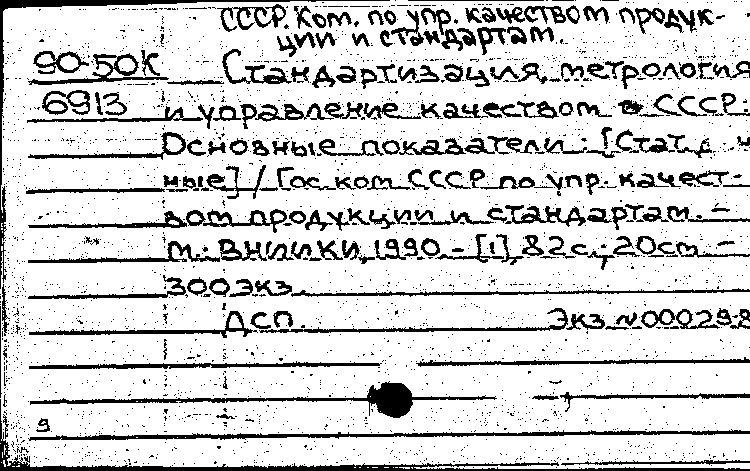 СССР. Ком. по упр. качеством продук-
ции и стандартам.
90-50К Стандартизация, метрология
6913 и управление качеством в СССР:
Основные показатели: [Стат. 
ные] / Гос ком СССР по упр. качест-
вом продукции и стандартам. –
М.: ВНИИКИ, 1990. – [1], 82 с.; 20 см –
300 экз.
ДСП. Экз №000298
9